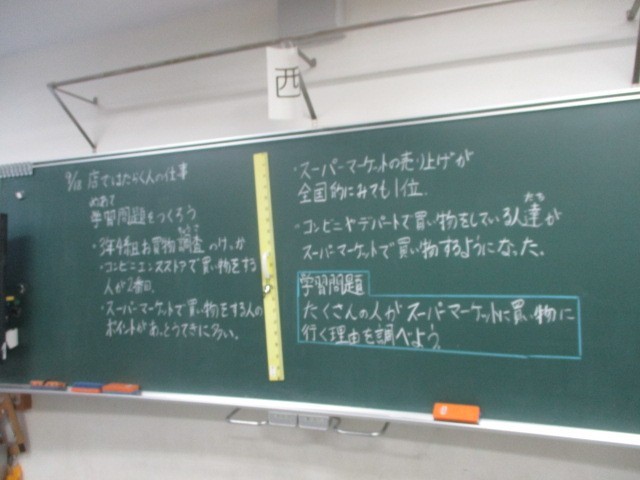 西
9/18 店ではたらく人の仕事
めあて
学習問題をつくろう
・3年4組お買物調査のけっか
・コンビニエンスストアで買い物をする
人が2番目。
・スーパーマーケットで買い物をする人の
ポイントがあっとうてきに多い。
・スーパーマーケットの売り上げが
全国的にみても1位。
・コンビニやデパートで買い物をしている人達が
たち
スーパーマーケットで買い物するようになった。
学習問題
たくさんの人がスーパーマーケットに買い物に
行く理由を調べよう。